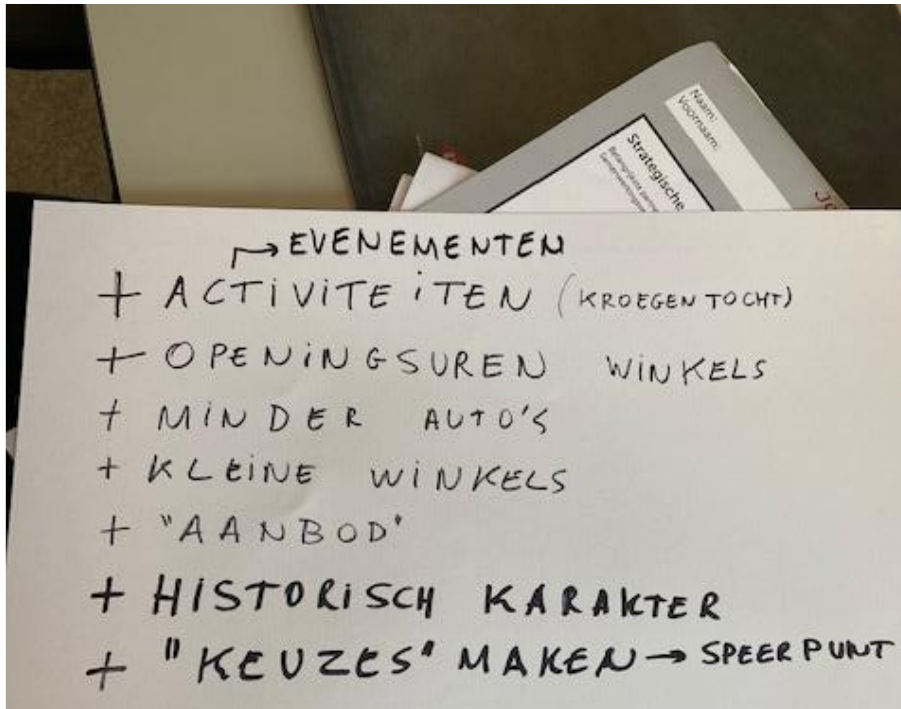 Naam:
Voornaam:
Strategische
→ EVENEMENTEN
+ ACTIVITEITEN (KROEGENTOCHT)
+ OPENINGSUREN WINKELS
+ MINDER AUTO'S
+ KLEINE WINKELS
+ "AANBOD"
+ HISTORISCH KARAKTER
+ "KEUZES" MAKEN → SPEERPUNT